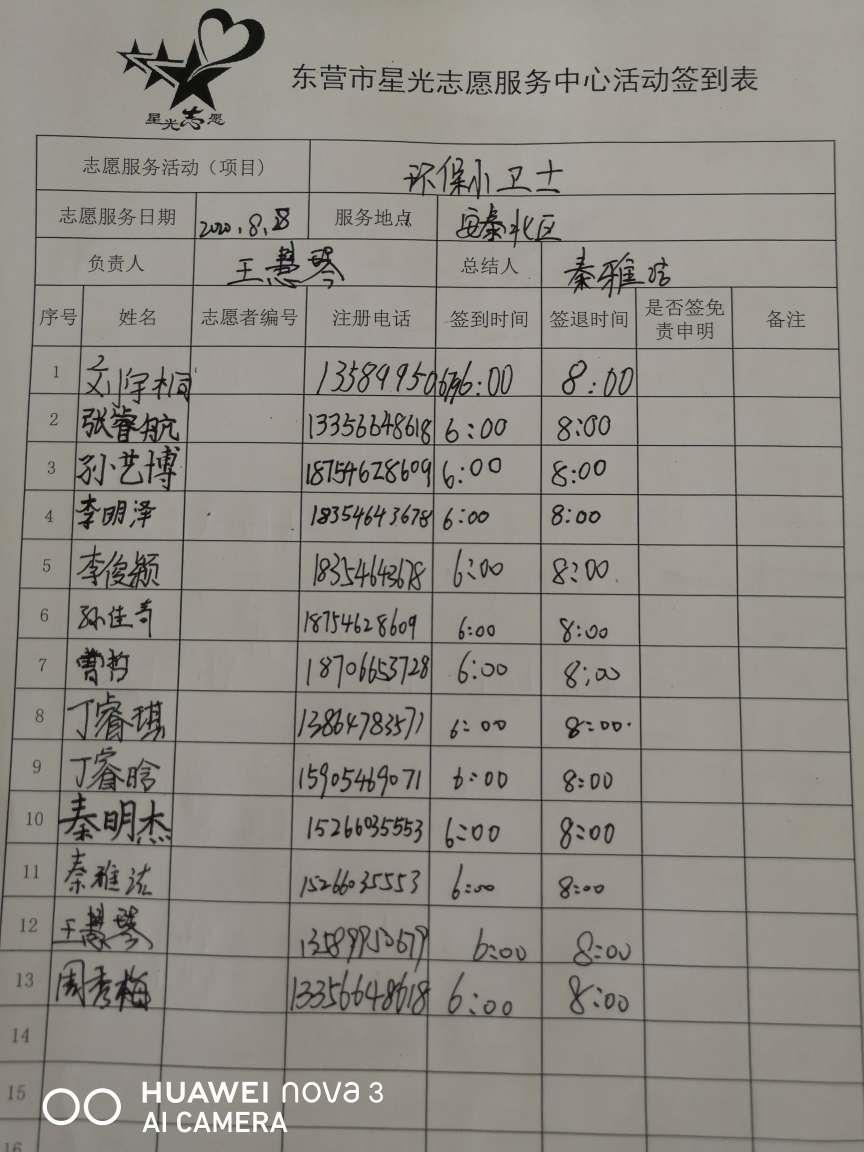 星光志愿
东营市星光志愿服务中心活动签到表
志愿服务活动（项目） 环保小卫士
志愿服务日期 2020.8.28 服务地点 安泰北区
负责人 王慧琴 总结人 秦雅洁
序号 姓名 志愿者编号 注册电话 签到时间 签退时间 是否签免责申明 备注
1 刘宇桐 13589950679 6:00 8:00
2 张睿航 13356648618 6:00 8:00
3 孙艺博 18754628609 6:00 8:00
4 李明泽 18354643678 6:00 8:00
5 李俊颖 18354643678 6:00 8:00
6 孙佳奇 18754628609 6:00 8:00
7 曹哲 18706653728 6:00 8:00
8 丁睿琪 13864783571 6:00 8:00
9 丁睿晗 15905469071 6:00 8:00
10 秦明杰 15266035553 6:00 8:00
11 秦雅洁 15266035553 6:00 8:00
12 王慧琴 13589950679 6:00 8:00
13 周秀梅 13356648618 6:00 8:00
14
15
16
HUAWEI nova 3
AI CAMERA